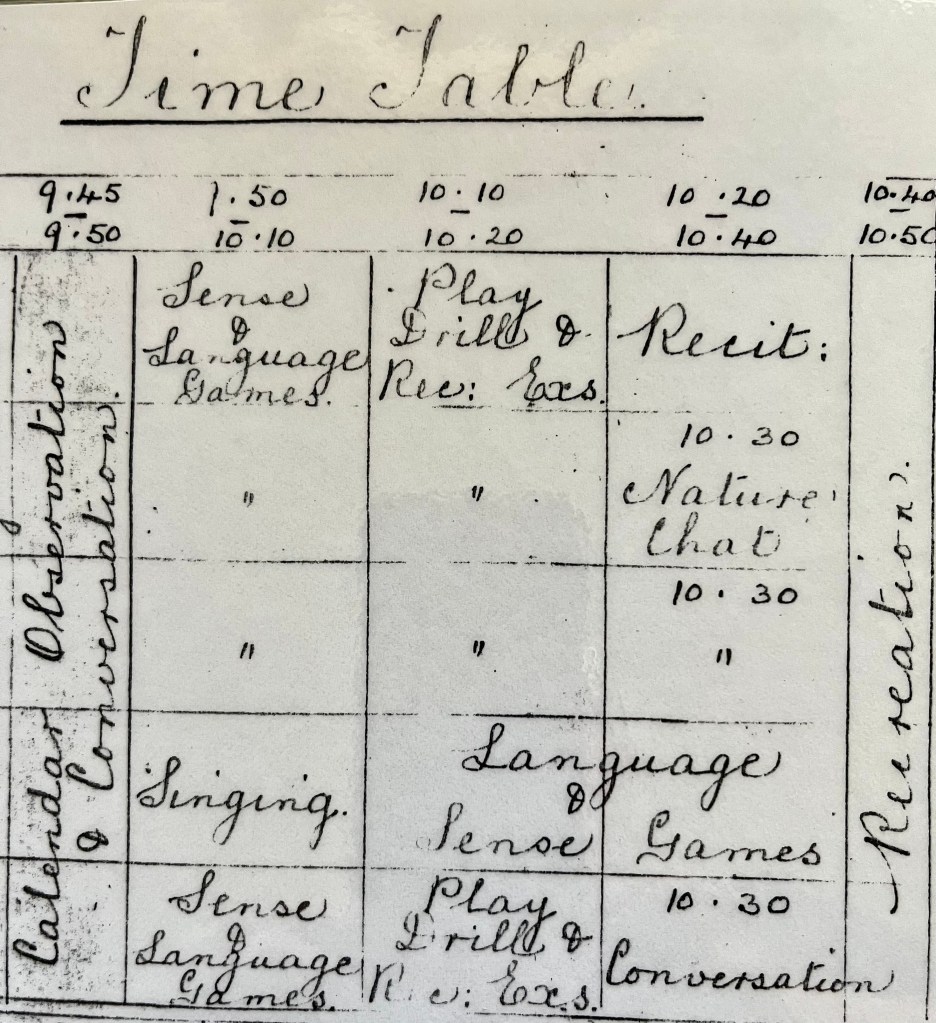 Time Table.
9.45 1.50 10.10 10.20 10.40
9.50 10.10 10.20 10.40 10.50
Calendar Observation
& Conversation.
Sense
&
Language
Games.
Play
Drill &
Rec: Exs.
Recit:
Recreation.
" "
10.30
Nature
Chat
" "
10.30
"
Singing.
Language
&
Sense Games
Sense
&
Language
Games.
Play
Drill &
Rec: Exs.
10.30
Conversation